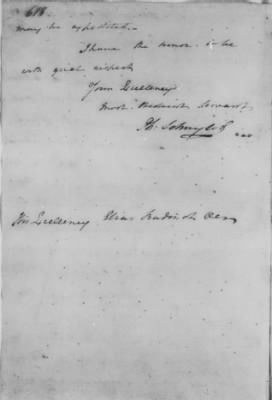 618
may be expedited.—
I have the honor to be
with great respect
Your Excellency
most Obedient Servant
Ph. Schuyler
His Excellency Elias Boudinot